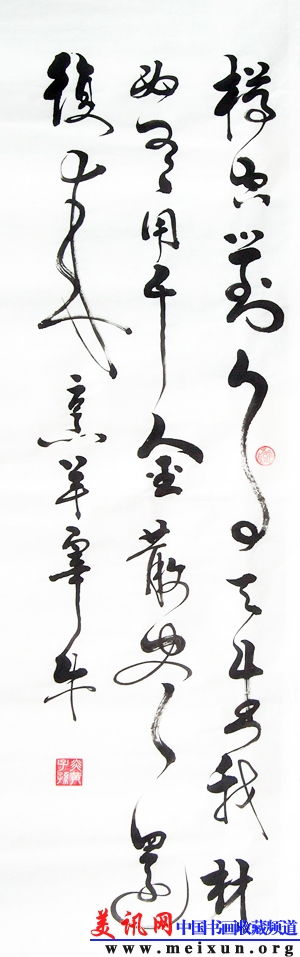 樽空對月天生我材
必有用千金散盡還
復來烹羊宰牛
炎黃子孫
美讯网 中国书画收藏频道
www.meixun.org